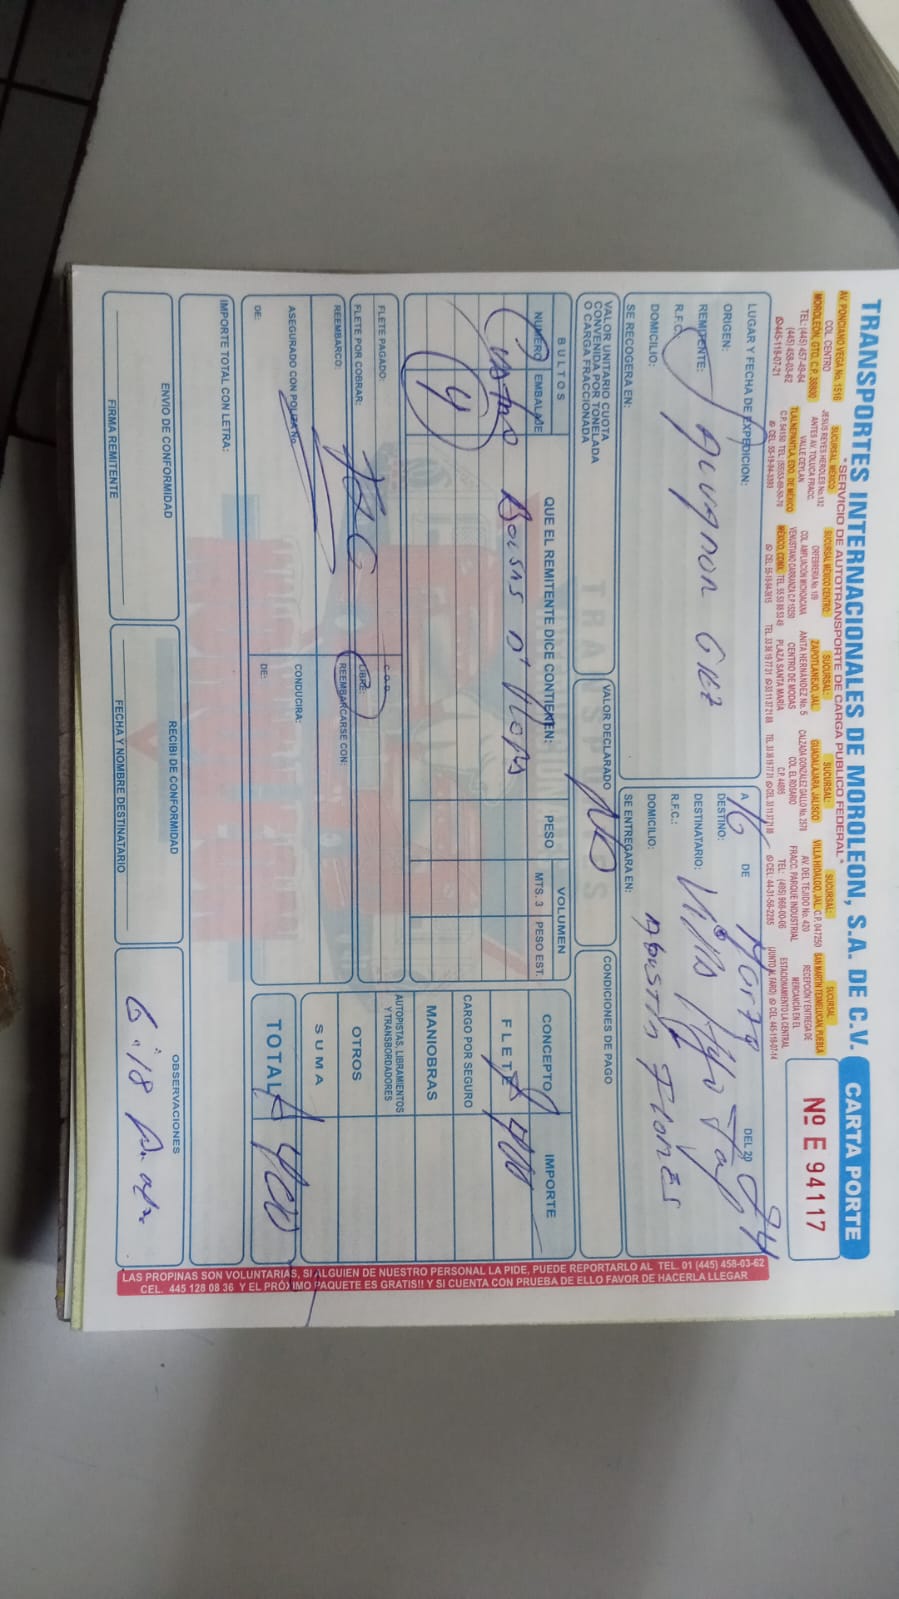 TRANSPORTES INTERNACIONALES DE MOROLEON, S.A. DE C.V.
"SERVICIO DE AUTOTRANSPORTE DE CARGA PUBLICO FEDERAL"
AV. PONCIANO VEGA No. 1516
COL. CENTRO
MOROLEÓN, GTO. C.P. 38800
TEL: (445) 457-49-64
(445) 458-03-62
445-118-07-21
SUCURSAL MÉXICO:
JESUS REYES HEROLES No.132
ANTES AV. TOLUCA FRACC.
VALLE CEYLAN
TLALNEPANTLA, EDO. DE MÉXICO
SUCURSAL MÉXICO CENTRO:
ORFEBRERIA No. 109
COL. AMPLIACIÓN MICHOACANA
VENUSTIANO CARRANZA C.P. 15250
MÉXICO, CDMX.
SUCURSAL:
ZAPOTLANEJO, JAL.
ANITA HERNÁNDEZ No. 5
CENTRO DE MODAS
PLAZA SANTA MARÍA
SUCURSAL:
GUADALAJARA, JALISCO
CALZADA GONZÁLEZ GALLO No. 2578
COL. EL ROSARIO
C.P. 4485
SUCURSAL:
VILLA HIDALGO, JAL. C.P. 047250
AV. DEL TEJIDO No. 420
FRACC. PARQUE INDUSTRIAL
TEL: (495) 968-00-06
SUCURSAL
SAN MARTIN TEXMELUCAN, PUEBLA
RECEPCIÓN Y ENTREGA DE
MERCANCIA EN EL
ESTACIONAMIENTO LA CENTRAL
(JUNTO AL FARO) CEL. 445-118-07-14
CARTA PORTE
Nº E 94117
LUGAR Y FECHA DE EXPEDICION:
A 16 DE Marzo DEL 20 24
ORIGEN:
DESTINO: Villa Hgo Jal
REMITENTE:
DESTINATARIO:
R.F.C.
R.F.C.:
DOMICILIO:
DOMICILIO: Agustin Flores
SE RECOGERA EN:
SE ENTREGARA EN:
VALOR UNITARIO CUOTA
CONVENIDA POR TONELADA
O CARGA FRACCIONADA
VALOR DECLARADO
CONDICIONES DE PAGO
BULTOS
NUMERO EMBALAJE
QUE EL REMITENTE DICE CONTIENEN:
PESO
VOLUMEN
MTS. 3 PESO EST.
CONCEPTO IMPORTE
Cuatro Bolsas
(4)
FLETE $ 400
CARGO POR SEGURO
MANIOBRAS
AUTOPISTAS, LIBRAMIENTOS
Y TRANSBORDADORES
OTROS
SUMA
TOTAL $ 400
FLETE PAGADO:
FLETE POR COBRAR:
C.O.D.
LIBRE:
REEMBARCO:
REEMBARCARSE CON:
ASEGURADO CON POLIZA No.
CONDUCIRA:
DE:
DE:
IMPORTE TOTAL CON LETRA:
ENVIO DE CONFORMIDAD
FIRMA REMITENTE
RECIBI DE CONFORMIDAD
FECHA Y NOMBRE DESTINATARIO
OBSERVACIONES
6:18
LAS PROPINAS SON VOLUNTARIAS, SI ALGUIEN DE NUESTRO PERSONAL LA PIDE, PUEDE REPORTARLO AL TEL. 01 (445) 458-03-62
CEL. 445 128 08 36 Y EL PRÓXIMO PAQUETE ES GRATIS!! Y SI CUENTA CON PRUEBA DE ELLO FAVOR DE HACERLA LLEGAR